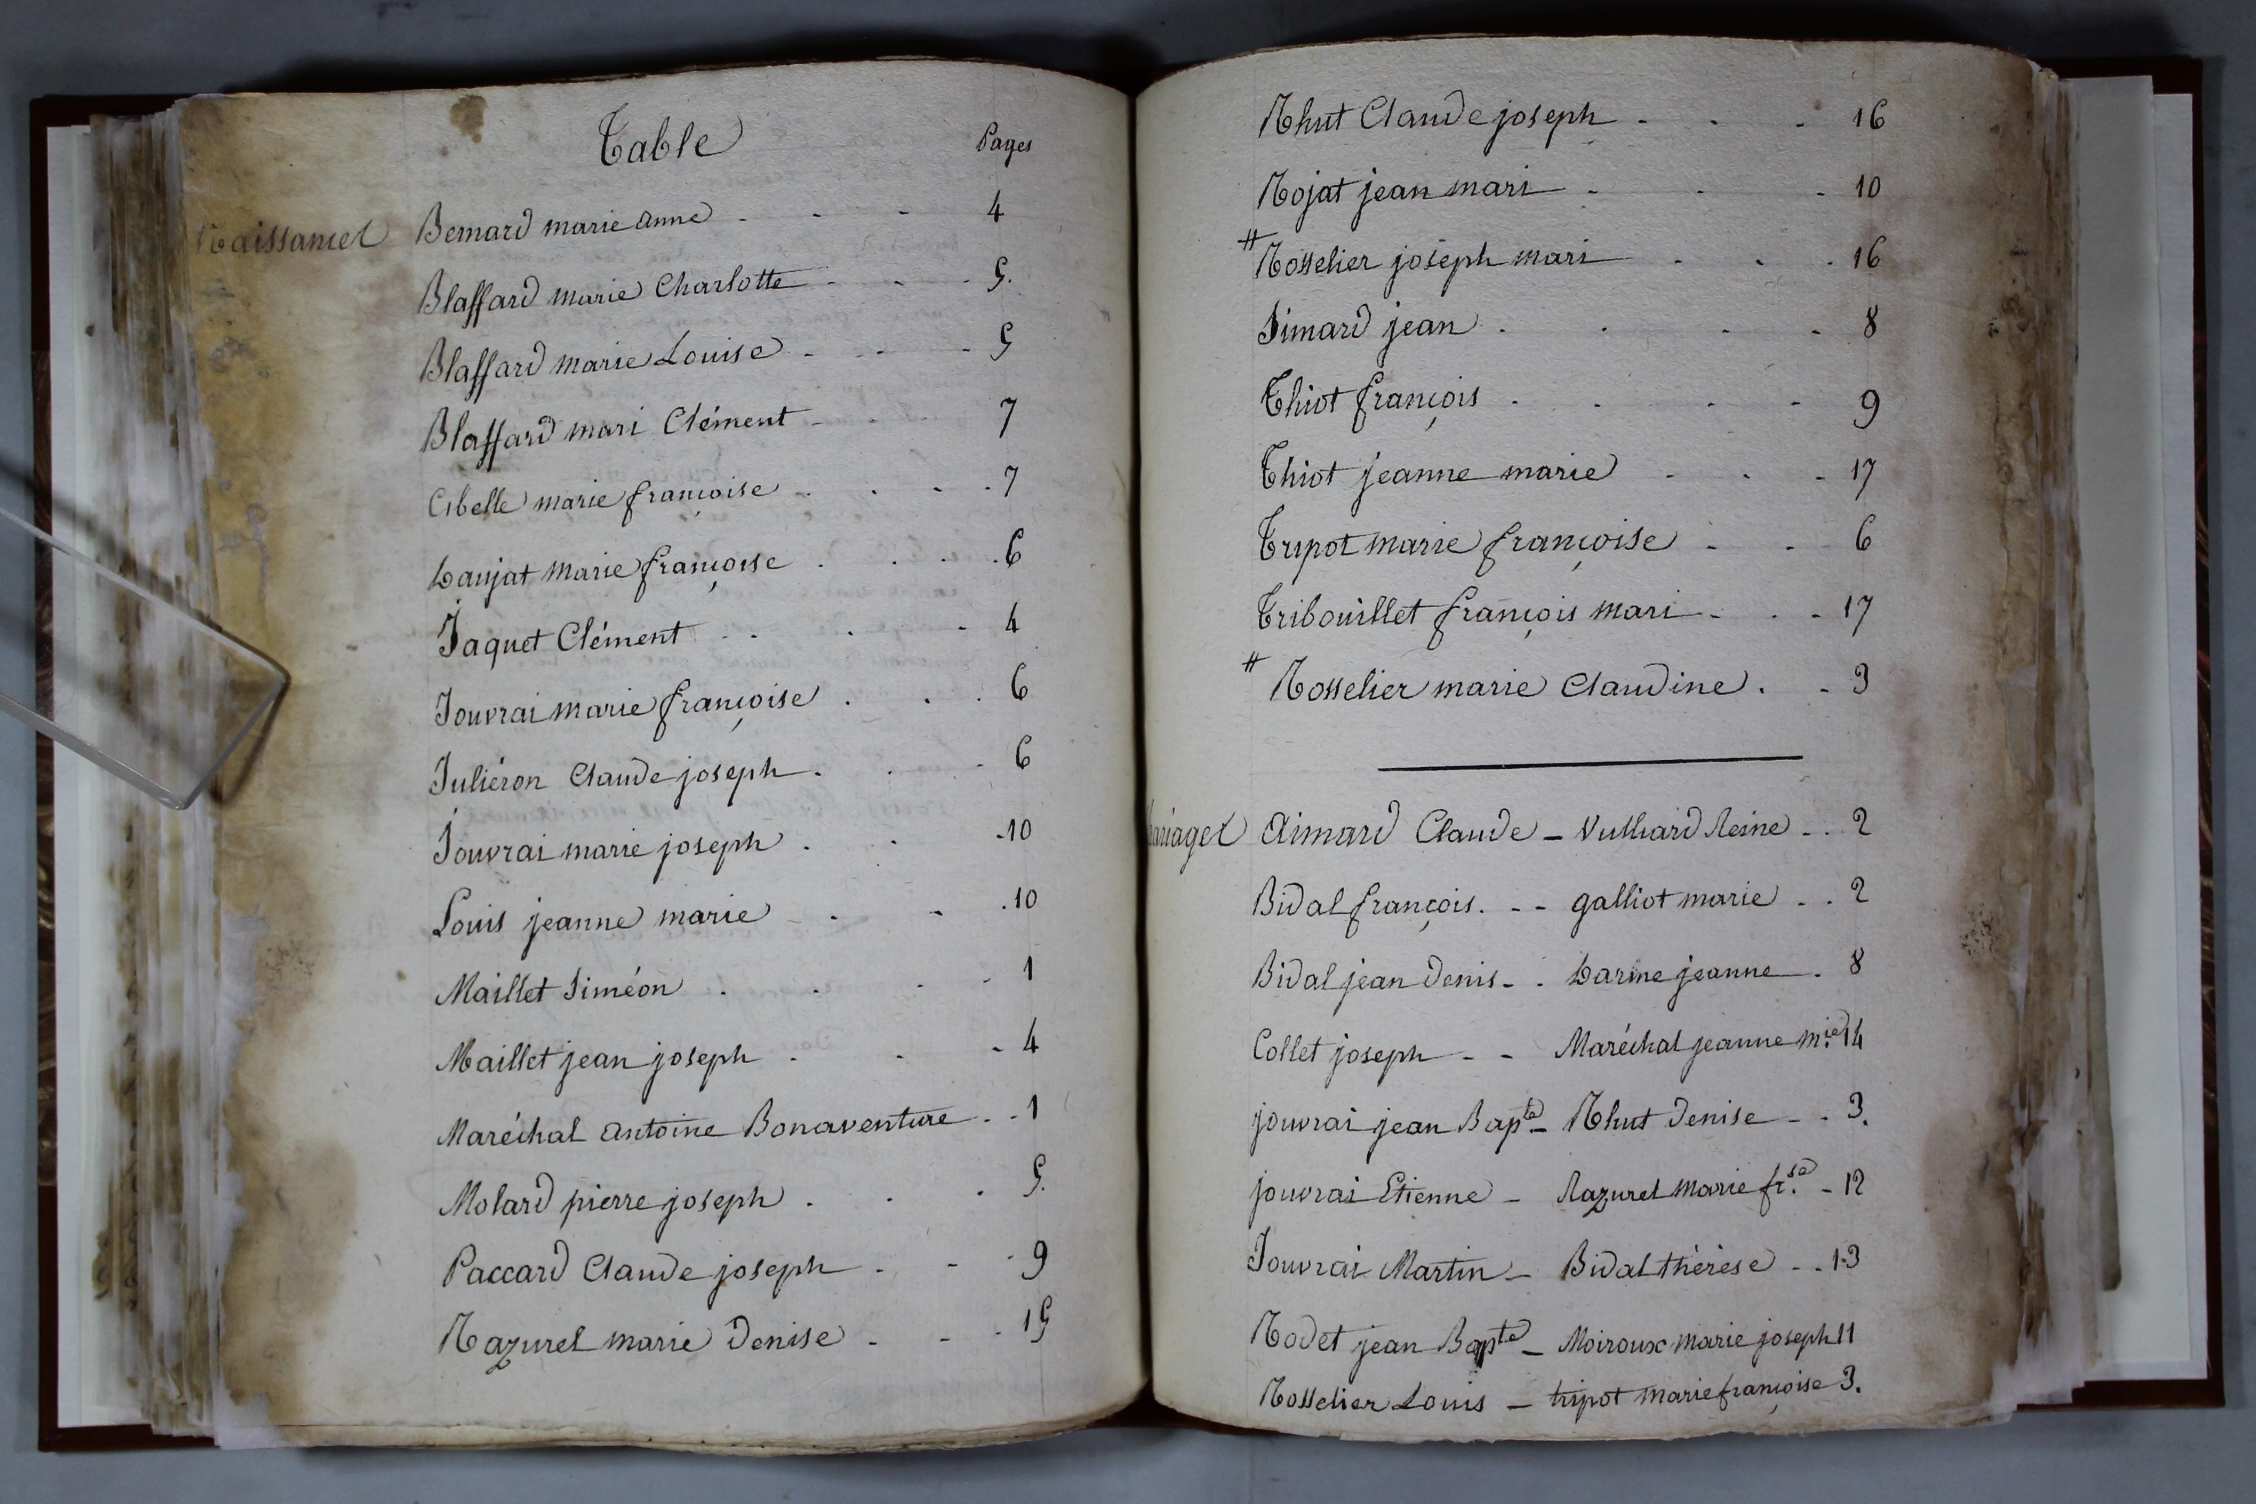 Table
Pages
Naissances Bernard marie anne - - - 4
Blaffard marie Charlotte - - - 5.
Blaffard marie Louise - - - 5
Blaffard mari Clément - - 7
Cibelle marie françoise - . - . 7
Daujat marie françoise . . . . 6
Jaquet Clément - . . - 4
Jouvrai marie françoise . . . 6
Juliéron Claude joseph . . . 6
Jouvrai marie joseph . . . 10
Louis jeanne marie - . - . 10
Maillet Siméon . . . - 1
Maillet jean joseph . - - 4
Maréchal antoine Bonaventure . - 1
Molard pierre joseph . . . 5.
Paccard Claude joseph . - . 9
Razurel marie Denise - - . 15
Rhut Claude joseph - - - 16
Rojat jean mari - - - 10
# Rosselier joseph mari - - . 16
Simard jean . . - - 8
Thiot françois . . - - 9
Thiot jeanne marie - - - 17
Tripot marie françoise - - 6
Tribouillet françois mari - . - 17
# Rosselier marie Claudine . - 3
Mariages Aimard Claude - Vulliard Reine - . 2
Bidal françois . - - galliot marie . . 2
Bidal jean Denis - . Darme jeanne . 8
Collet joseph - - Maréchal jeanne m.ie 14
jouvrai jean Bap.te - Rhut Denise - . 3.
jouvrai Etienne - Razurel marie fr.se - 12
Jouvrai Martin - Bidal thérèse - . 13
Rodet jean Bapte - Moiroux marie joseph 11
Rosselier Louis - tripot marie françoise 3.